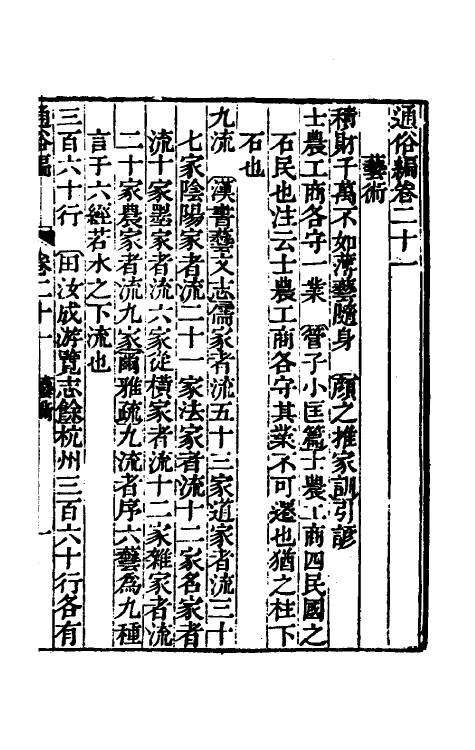 通俗編卷二十一
藝術
積財千萬不如薄藝隨身　顏之推家訓引諺
士農工商各守一業　管子小匡篇士農工商四民國之
石民也注云士農工商各守其業不可遷也猶之柱下
石也
九流　漢書藝文志儒家者流五十三家道家者流三十
七家陰陽家者流二十一家法家者流十二家名家者
流十家墨家者流六家從橫家者流十二家雜家者流
二十家農家者流九家爾雅疏九流者序六藝為九種
言于六經若水之下流也
三百六十行　田汝成游覽志餘杭州三百六十行各有
通俗編　卷二十一　藝術　一